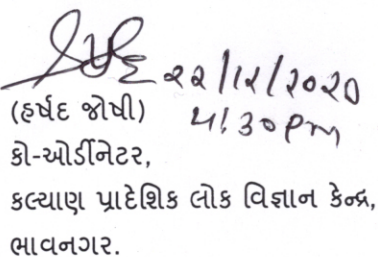 ૨૨/૧૨/૨૦૨૦
(હર્ષદ જોષી)
૫/૩૦ pm
કો-ઓર્ડીનેટર,
કલ્યાણ પ્રાદેશિક લોક વિજ્ઞાન કેન્દ્ર,
ભાવનગર.